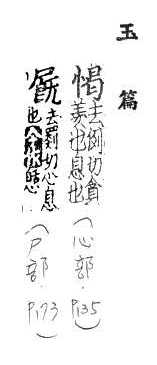 玉篇
愒去例切貪羨也息也(心部·P135)
去罽切心息也(尸部·P173)